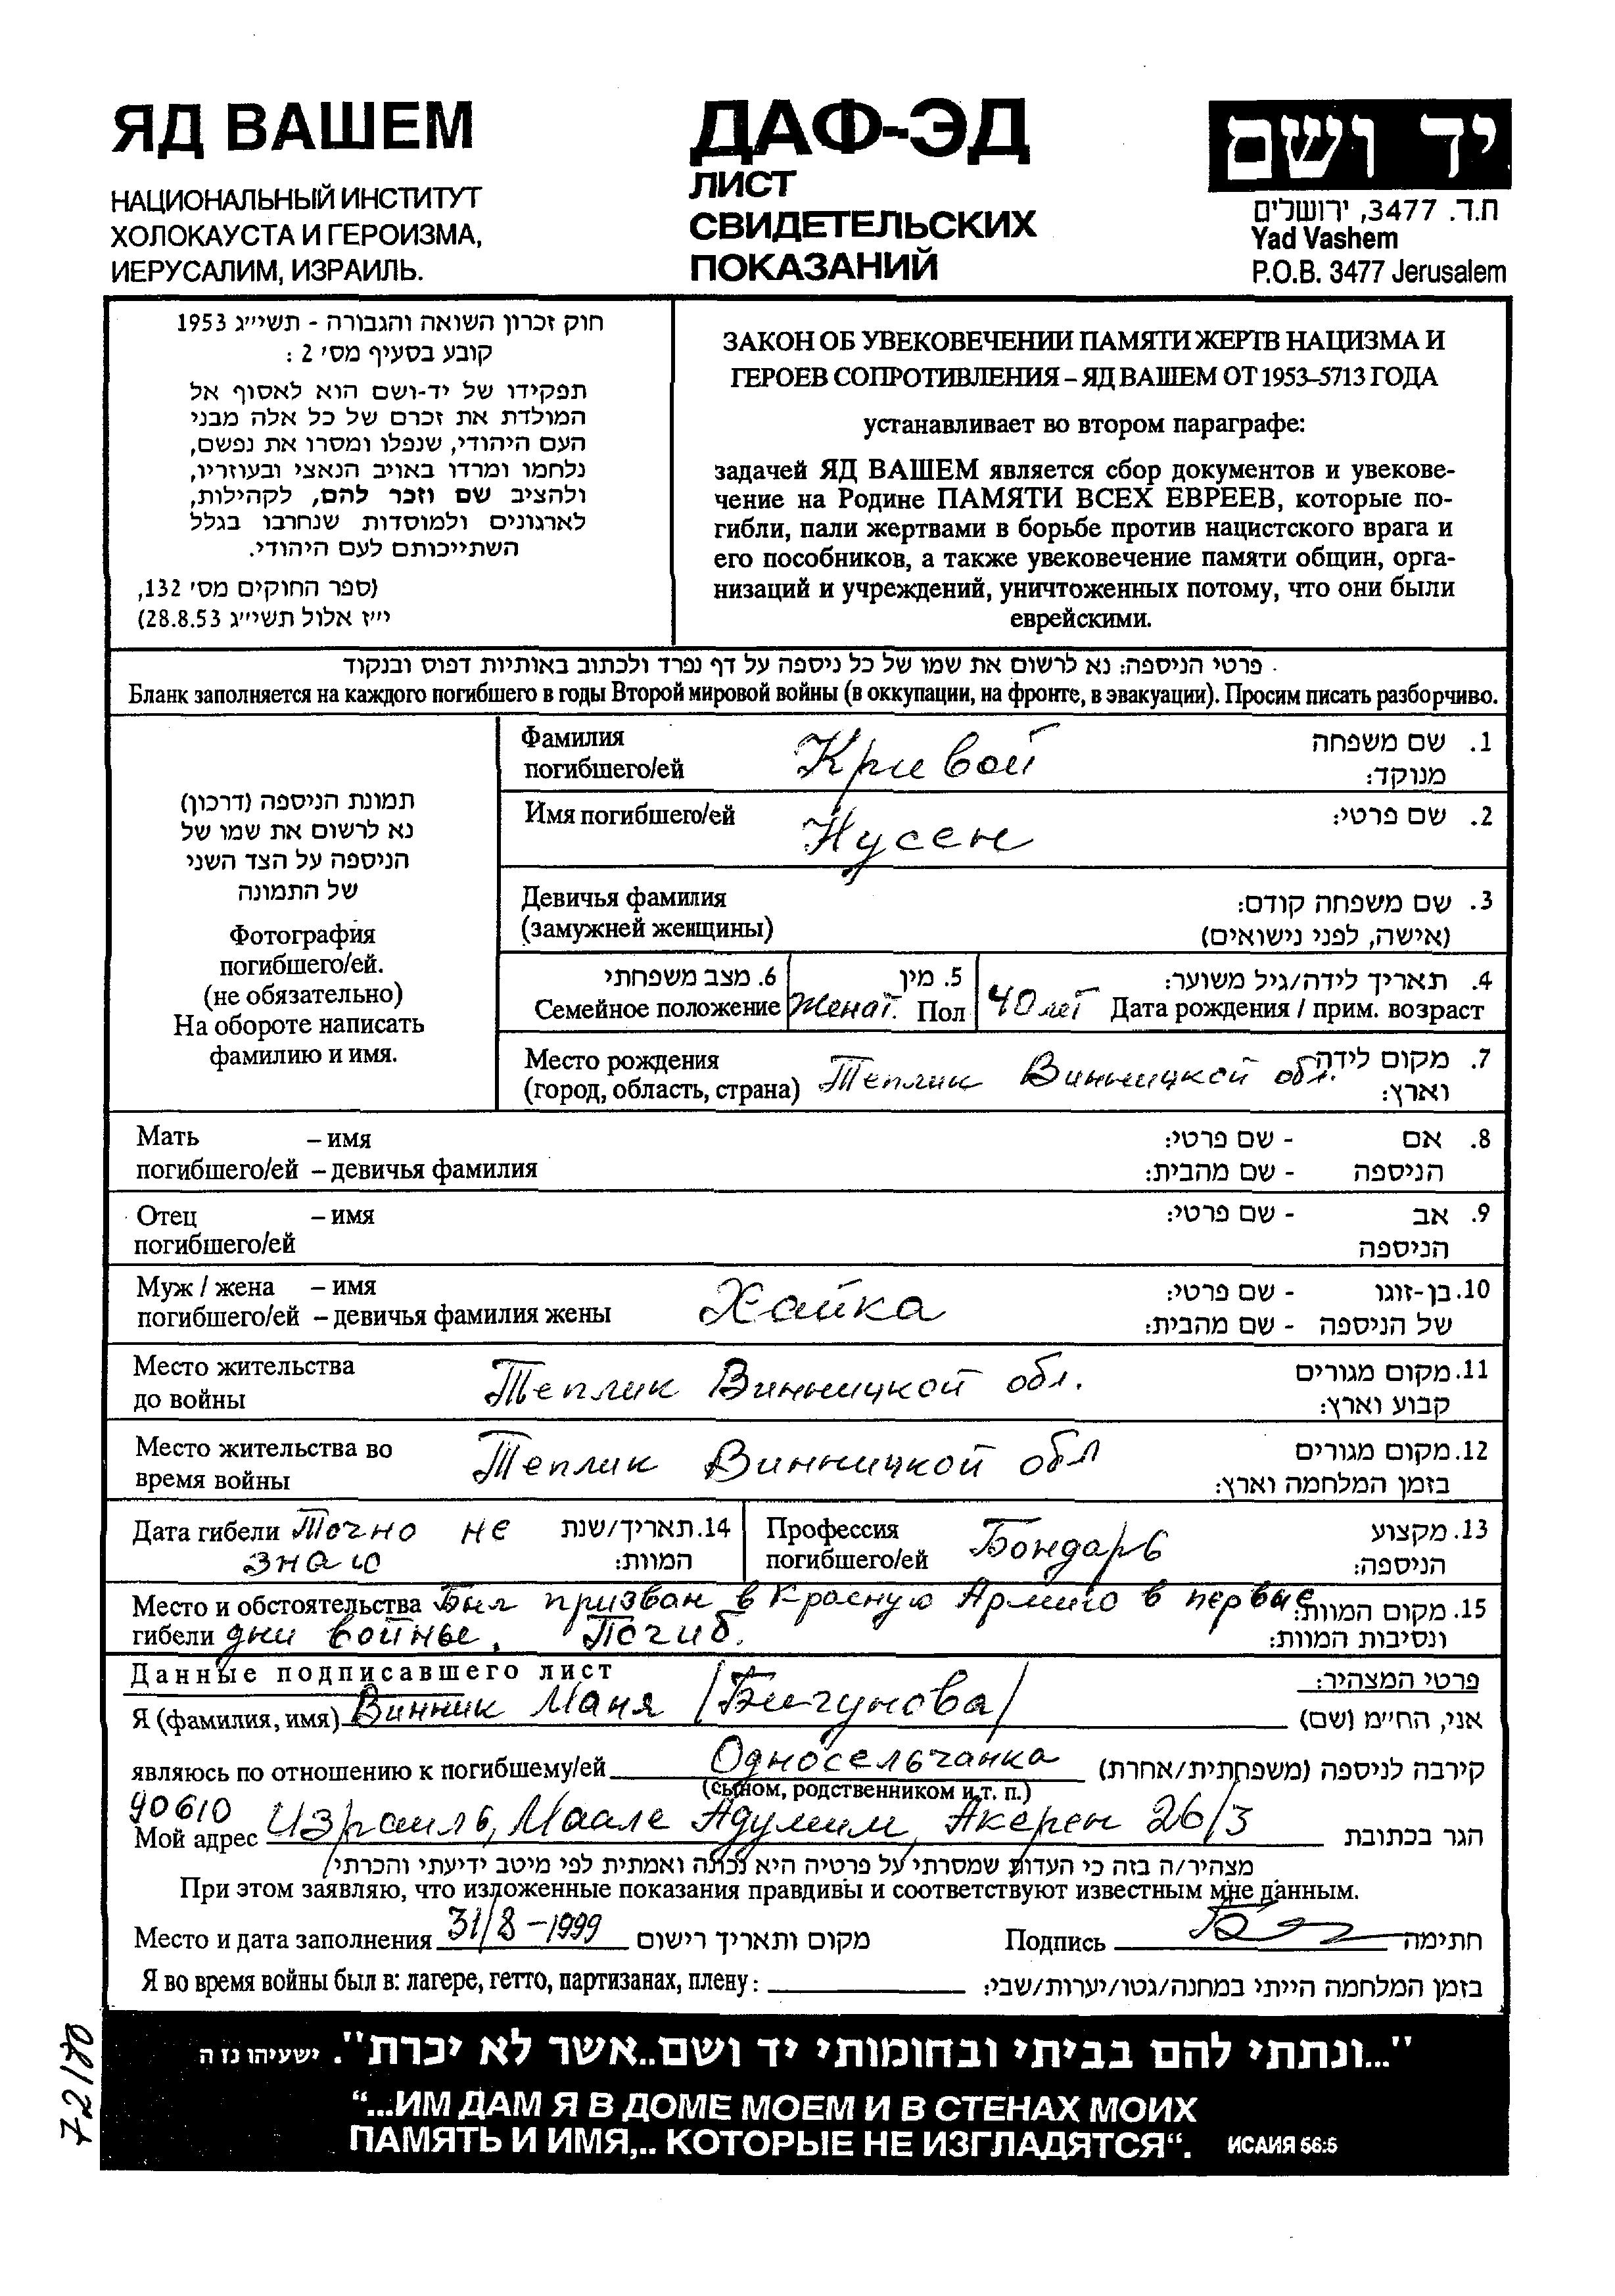 ЯД ВАШЕМ
НАЦИОНАЛЬНЫЙ ИНСТИТУТ
ХОЛОКАУСТА И ГЕРОИЗМА,
ИЕРУСАЛИМ, ИЗРАИЛЬ.
ДАФ-ЭД
ЛИСТ
СВИДЕТЕЛЬСКИХ
ПОКАЗАНИЙ
יד ושם
ת.ד. 3477, ירושלים
Yad Vashem
P.O.B. 3477 Jerusalem
חוק זכרון השואה והגבורה - תשי״ג 1953
קובע בסעיף מס׳ 2 :
תפקידו של יד-ושם הוא לאסוף אל
המולדת את זכרם של כל אלה מבני
העם היהודי, שנפלו ומסרו את נפשם,
נלחמו ומרדו באויב הנאצי ובעוזריו,
ולהציב שם וזכר להם, לקהילות,
לארגונים ולמוסדות שנחרבו בגלל
השתייכותם לעם היהודי.
(ספר החוקים מס׳ 132,
י״ז אלול תשי״ג 28.8.53)
ЗАКОН ОБ УВЕКОВЕЧЕНИИ ПАМЯТИ ЖЕРТВ НАЦИЗМА И
ГЕРОЕВ СОПРОТИВЛЕНИЯ – ЯД ВАШЕМ ОТ 1953–5713 ГОДА
устанавливает во втором параграфе:
задачей ЯД ВАШЕМ является сбор документов и увекове-
чение на Родине ПАМЯТИ ВСЕХ ЕВРЕЕВ, которые по-
гибли, пали жертвами в борьбе против нацистского врага и
его пособников, а также увековечение памяти общин, орга-
низаций и учреждений, уничтоженных потому, что они были
еврейскими.
פרטי הניספה: נא לרשום את שמו של כל ניספה על דף נפרד ולכתוב באותיות דפוס ובנקוד
Бланк заполняется на каждого погибшего в годы Второй мировой войны (в оккупации, на фронте, в эвакуации). Просим писать разборчиво.
תמונת הניספה (דרכון)
נא לרשום את שמו של
הניספה על הצד השני
של התמונה
Фотография
погибшего/ей.
(не обязательно)
На обороте написать
фамилию и имя.
Фамилия Кривой 1. שם משפחה
погибшего/ей מנוקד:
Имя погибшего/ей Нусен 2. שם פרטי:
Девичья фамилия 3. שם משפחה קודם:
(замужней женщины) (אישה, לפני נישואים)
6. מצב משפחתי 5. מין 4. תאריך לידה/גיל משוער:
Семейное положение Женат. Пол 40 лет Дата рождения / прим. возраст
Место рождения 7. מקום לידה
(город, область, страна) Теплик Винницкой обл. וארץ:
Мать – имя 8. אם - שם פרטי:
погибшего/ей – девичья фамилия הניספה - שם מהבית:
Отец – имя 9. אב - שם פרטי:
погибшего/ей הניספה
Муж / жена – имя Хайка 10. בן-זוגו - שם פרטי:
погибшего/ей – девичья фамилия жены של הניספה - שם מהבית:
Место жительства Теплик Винницкой обл. 11. מקום מגורים
до войны קבוע וארץ:
Место жительства во Теплик Винницкой обл 12. מקום מגורים
время войны בזמן המלחמה וארץ:
Дата гибели Точно не 14. תאריך/שנת
знаю המוות:
Профессия Бондарь 13. מקצוע
погибшего/ей הניספה:
Место и обстоятельства Был призван в Красную Армию в первые 15. מקום המוות:
гибели дни войны. Погиб. ונסיבות המוות:
Данные подписавшего лист פרטי המצהיר:
Я (фамилия, имя) Винник Маня /Бигунова/ אני, הח״מ (שם)
являюсь по отношению к погибшему/ей Односельчанка קירבה לניספה (משפחתית/אחרת)
(сыном, родственником и т. п.)
90610
Мой адрес Израиль, Маале Адумим, Акерен 26/3 הגר בכתובת
מצהיר/ה בזה כי העדות שמסרתי על פרטיה היא נכונה ואמתית לפי מיטב ידיעתי והכרתי
При этом заявляю, что изложенные показания правдивы и соответствуют известным мне данным.
Место и дата заполнения 31/8-1999 מקום ותאריך רישום Подпись חתימה
Я во время войны был в: лагере, гетто, партизанах, плену: בזמן המלחמה הייתי במחנה/גטו/יערות/שבי:
72/80
"...ונתתי להם בביתי ובחומותי יד ושם..אשר לא יכרת". ישעיהו נז ה
“...ИМ ДАМ Я В ДОМЕ МОЕМ И В СТЕНАХ МОИХ
ПАМЯТЬ И ИМЯ,.. КОТОРЫЕ НЕ ИЗГЛАДЯТСЯ“. ИСАИЯ 56:5